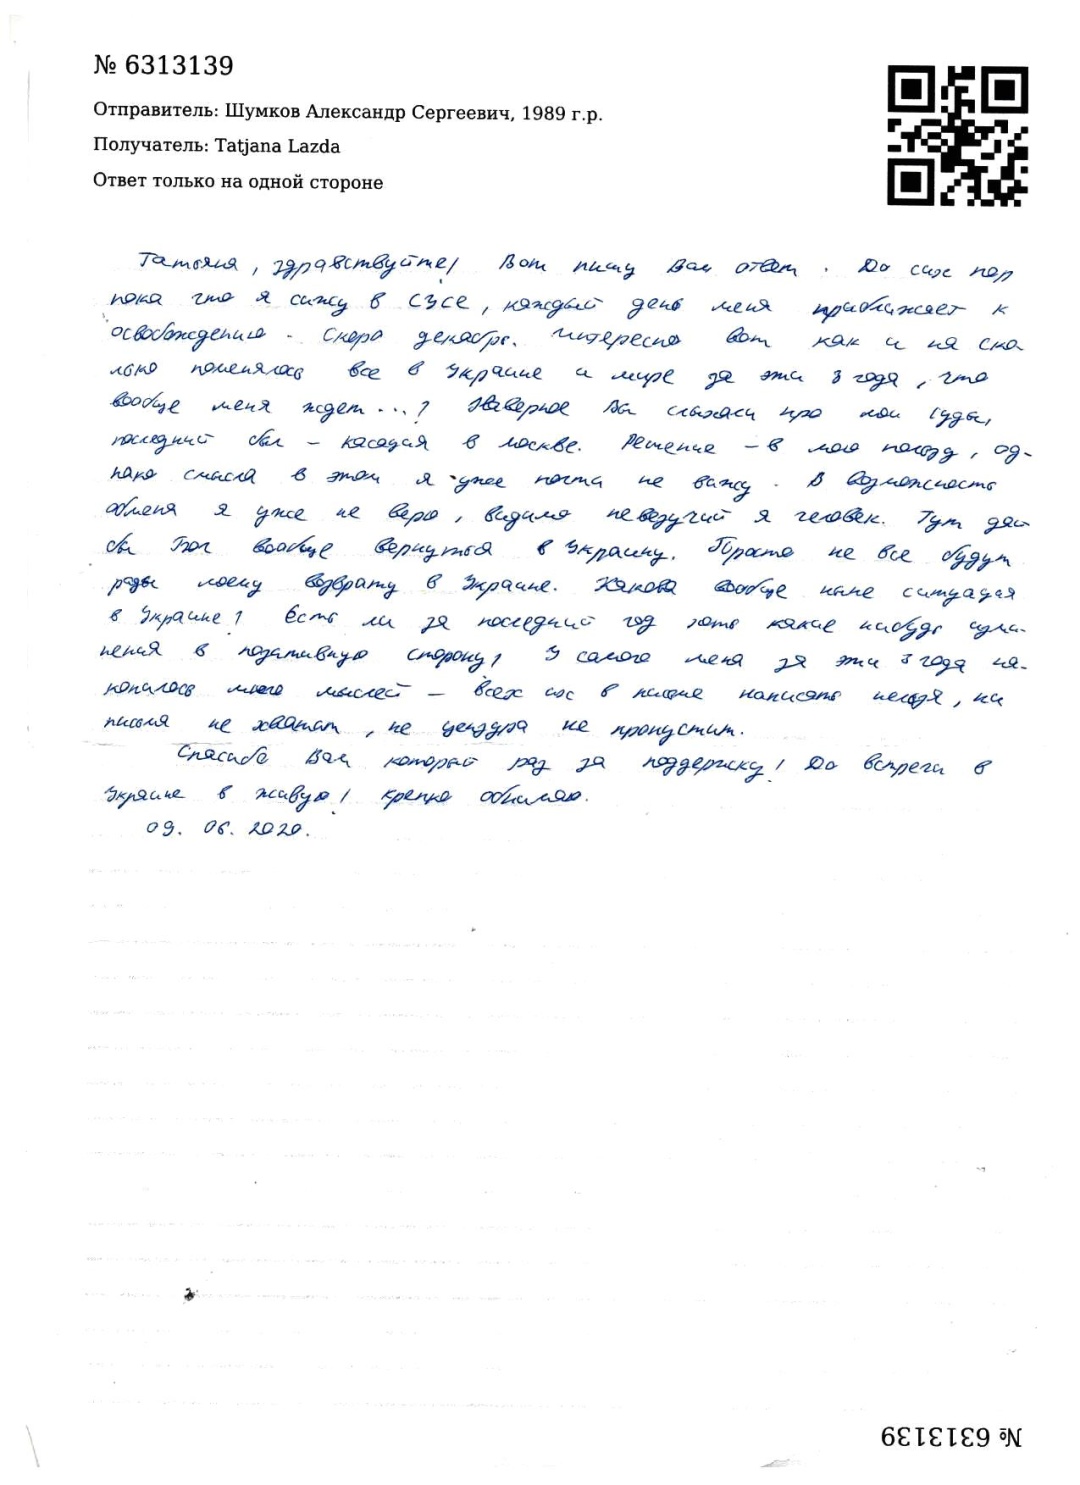 № 6313139
Отправитель: Шумков Александр Сергеевич, 1989 г.р.
Получатель: Tatjana Lazda
Ответ только на одной стороне
Татьяна, здравствуйте! Вот пишу Вам ответ. До сих пор
пока что я сижу в СУСе, каждый день меня приближает к
освобождению. Скоро декабрь. Интересно вот как и на ско-
лько поменялось все в Украине и мире за эти 3 года, что
вообще меня ждет...? Наверное Вы слыхали про мои суды,
последний был – касация в Москве. Решение – в мою пользу, од-
нако смысла в этом я уже почти не вижу. В возможность
обмена я уже не верю, видимо невезучий я человек. Тут дай
бы Бог вообще вернуться в Украину. Просто не все будут
рады моему возврату в Украине. Какова вообще ныне ситуация
в Украине? Есть ли за последний год хоть какие нибудь изме-
нения в позитивную сторону? У самого меня за эти 3 года на-
копилось много мыслей – всех их в письме написать нельзя, ни
письма не хватит, не цензура не пропустит.
Спасибо Вам который раз за поддержку! До встречи в
Украине в живую! Крепко обнимаю.
09. 06. 2020.
№ 6313139